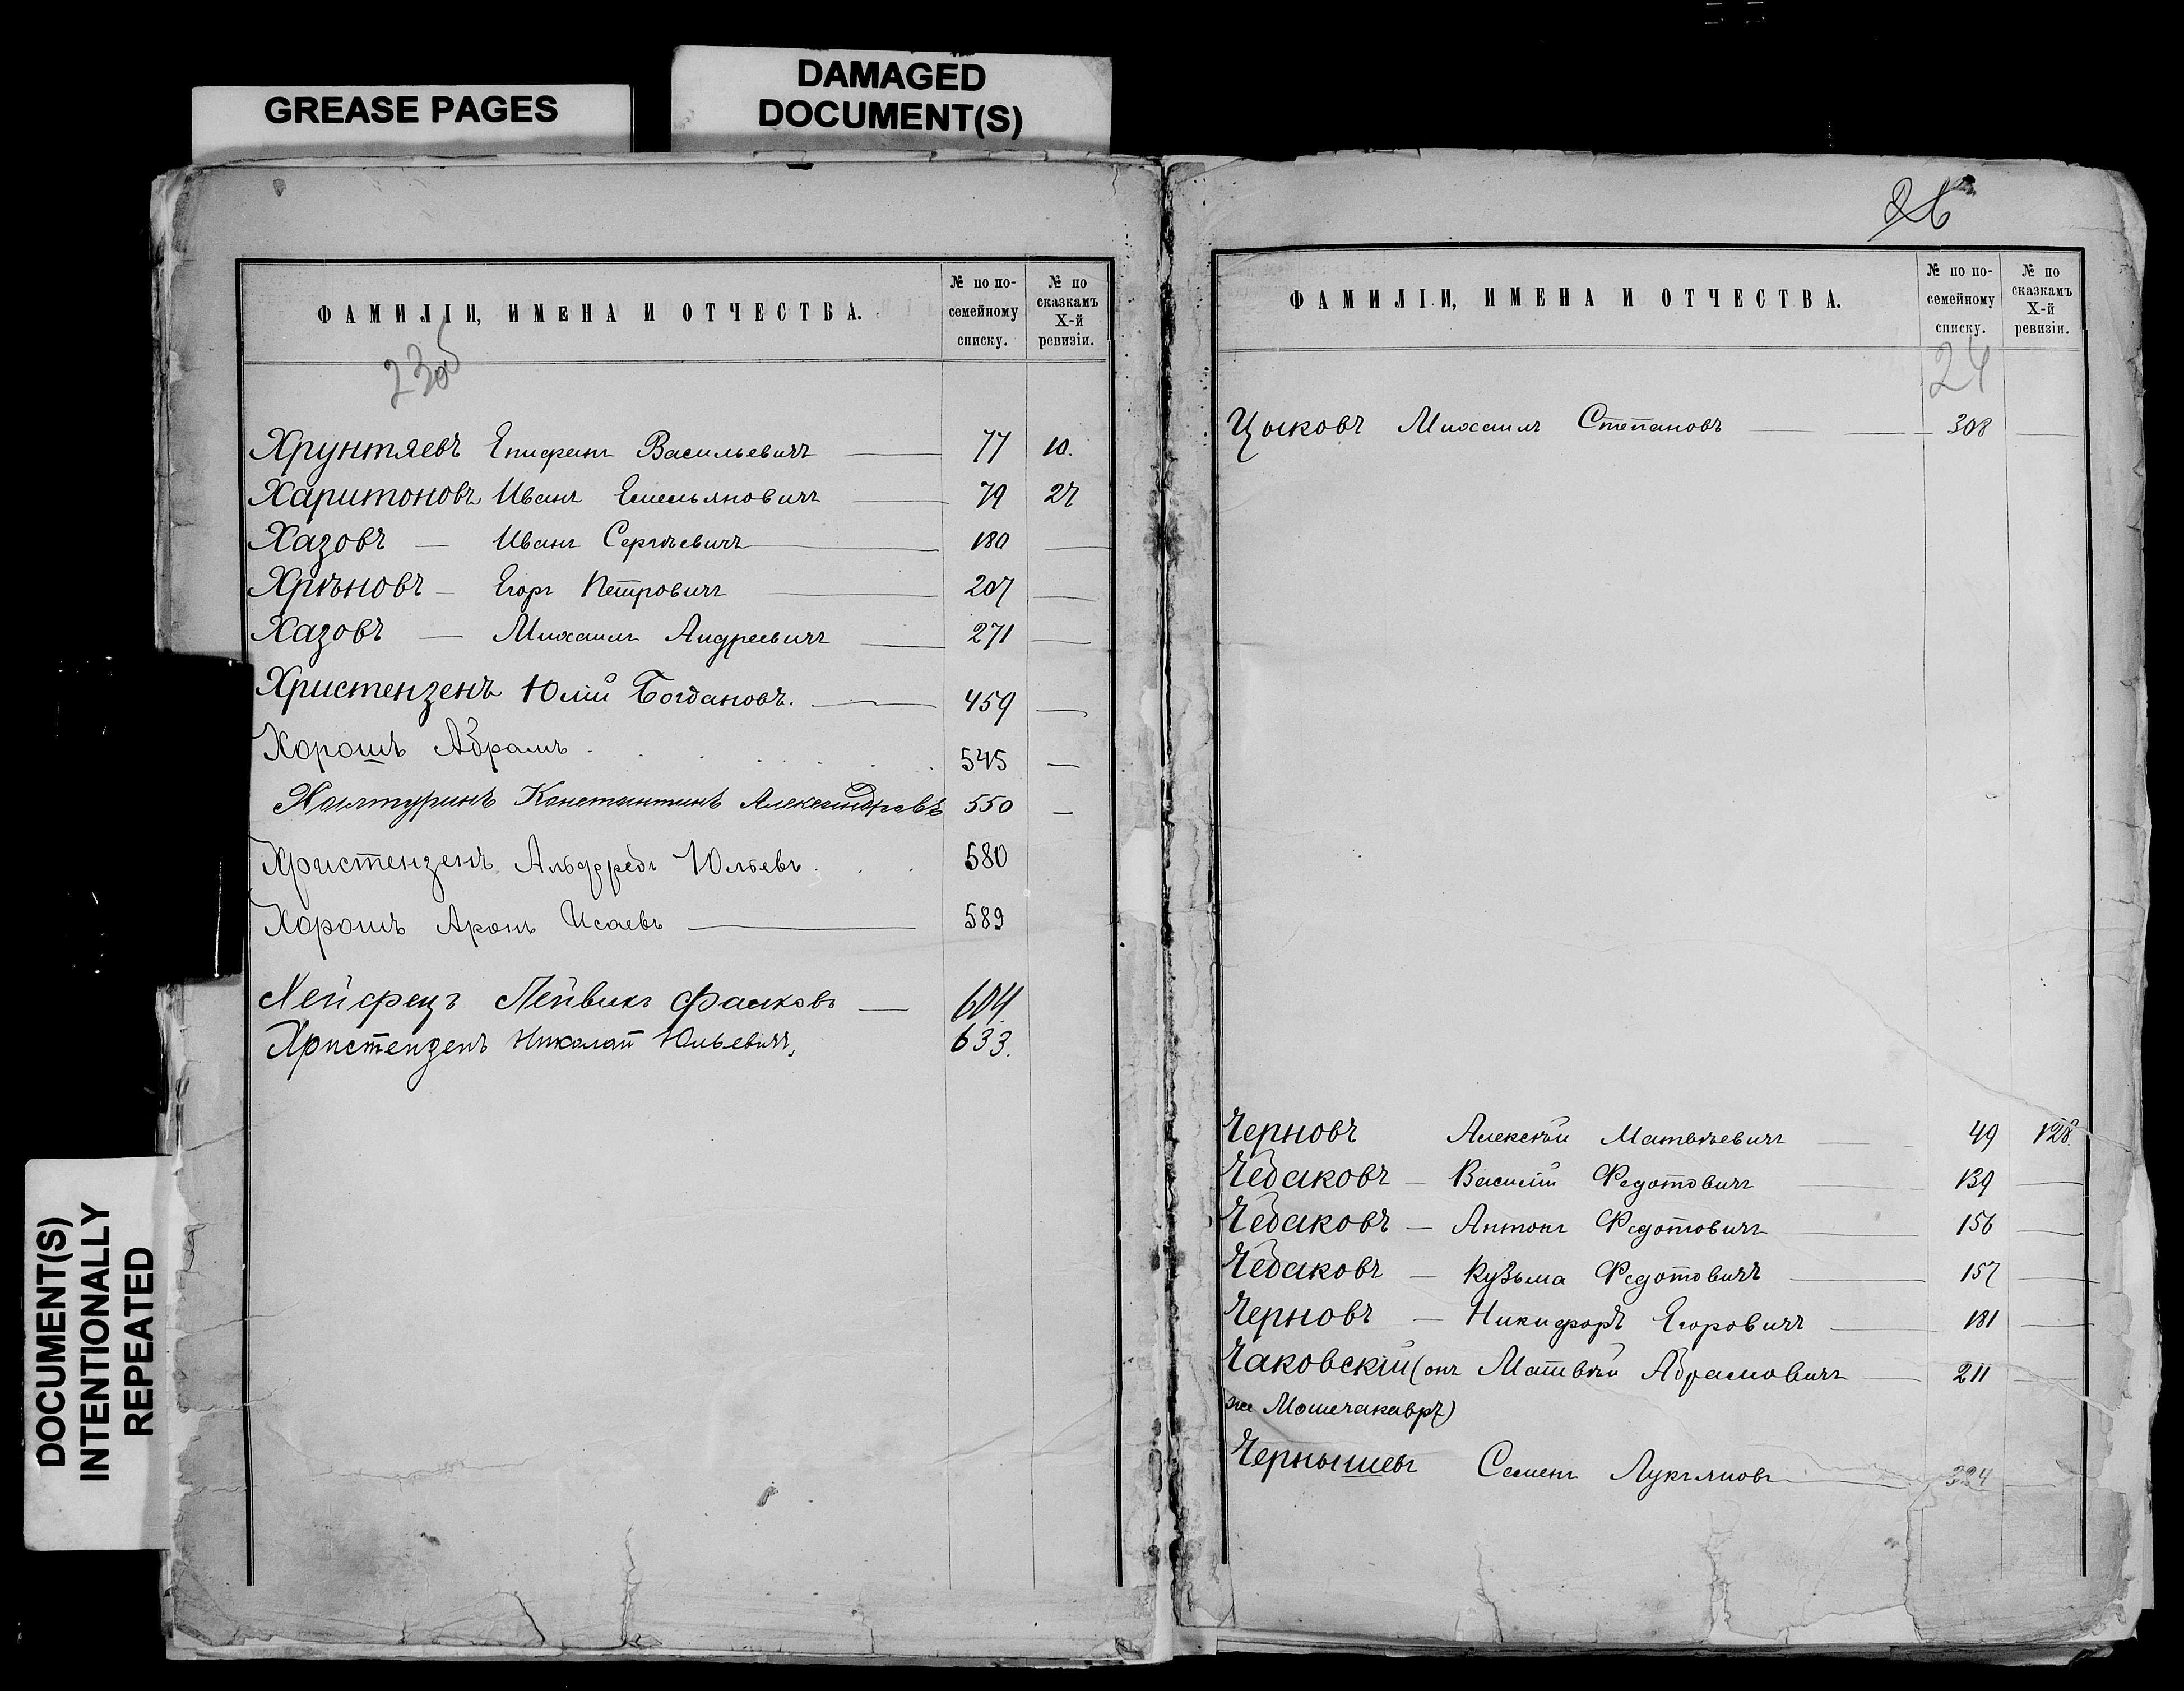 GREASE PAGES
DAMAGED
DOCUMENT(S)
DOCUMENT(S)
INTENTIONALLY
REPEATED
ФАМИЛІИ, ИМЕНА И ОТЧЕСТВА.
№ по по-
семейному
списку.
№ по
сказкамъ
X-й
ревизіи.
23об
Хрунтяевъ Епифанъ Васильевичъ — 77 10.
Харитоновъ Иванъ Емельяновичъ — 79 27
Хазовъ — Иванъ Сергѣевичъ — 180 —
Хрѣновъ — Егоръ Петровичъ — 207 —
Хазовъ — Михаилъ Андреевичъ — 271 —
Христензенъ Юлій Богдановъ. — 459 —
Хорошъ Абрамъ . . . . . . . 545 —
Халтуринъ Константинъ Александровъ 550 —
Христензенъ Альфредъ Юльевъ . . . 580
Хорошъ Аронъ Исаевъ — 589
Хейфецъ Лейвикъ Фалковъ — 604.
Христензенъ Николай Юльевичъ, 633.
26
ФАМИЛІИ, ИМЕНА И ОТЧЕСТВА.
№ по по-
семейному
списку.
№ по
сказкамъ
X-й
ревизіи.
24
Цыковъ Михаилъ Степановъ — 308 —
Черновъ Алексѣй Матвѣевичъ — 49 128.
Чедаковъ — Василій Федотовичъ — 139 —
Чедаковъ — Антонъ Федотовичъ — 156 —
Чедаковъ — Кузьма Федотовичъ — 157 —
Черновъ — Никифоръ Егоровичъ — 181 —
Чаковскій (онъ Матвѣй Абрамовичъ — 211 —
же Мошечакавръ)
Чернышевъ Семенъ Лукьяновъ — 324 —